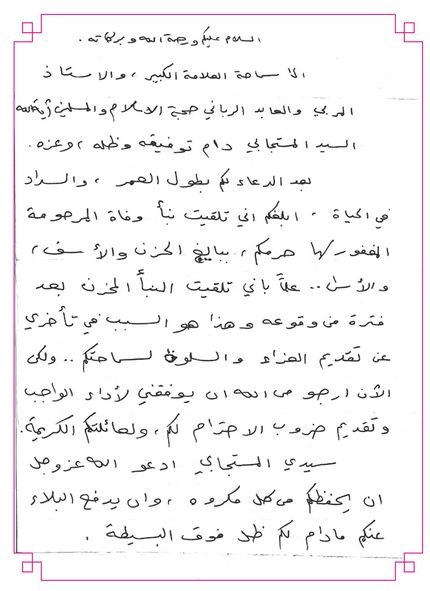 السلام عليكم ورحمة الله وبركاته .
الى سماحة العلامة الكبير ، والاستاذ
المربي والعابد الرباني حجة الاسلام والمسلمين
السيد المستجابي دام توفيقه وظله ، وعزه .
بعد الدعاء لكم بطول العمر ، والسداد
في الحياة ، ابلغكم اني تلقيت نبأ وفاة المرحومة
المغفور لها حرمكم ، ببالغ الحزن والأسف ،
والأسى .. علماً باني تلقيت النبأ المحزن بعد
فترة من وقوعه وهذا هو السبب في تأخري
عن تقديم العزاء والسلوة لسماحتكم .. ولكن
الآن ارجو من الله ان يوفقني لأداء الواجب
وتقديم ضروب الاحترام لكم ، ولعائلتكم الكريمة .
سيدي المستجابي ادعو الله عز وجل
ان يحفظكم من كل مكروه ، وان يدفع البلاء
عنكم مادام لكم ظل فوق البسيطة .